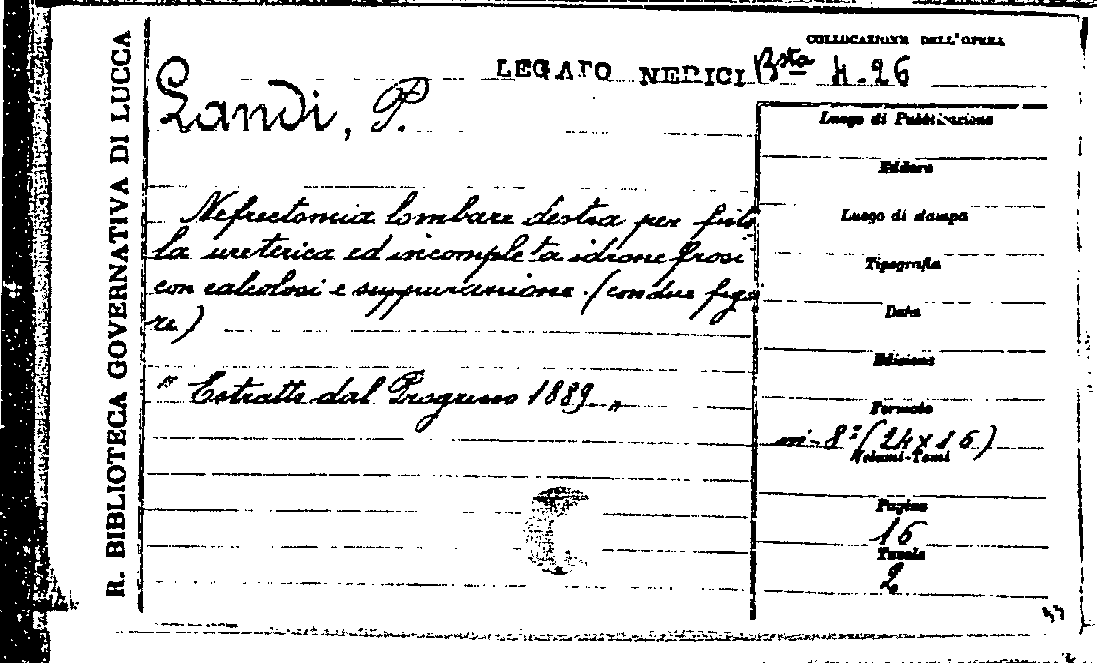 R. BIBLIOTECA GOVERNATIVA DI LUCCA
COLLOCAZIONE DELL'OPERA
LEGATO NERICI Bsta 4.26
Landi, P.
Nefrectomia lombare destra per fisto
la ureterica ed incompleta idronefrosi
con calcolosi e suppurazione. (con due figu
re)
" Estratto dal Progresso 1889 "
Luogo di Pubblicazione
Editore
Luogo di stampa
Tipografia
Data
Edizione
Formato
in-8º (24x16)
Volumi-Tomi
Pagine
16
Tavole
2